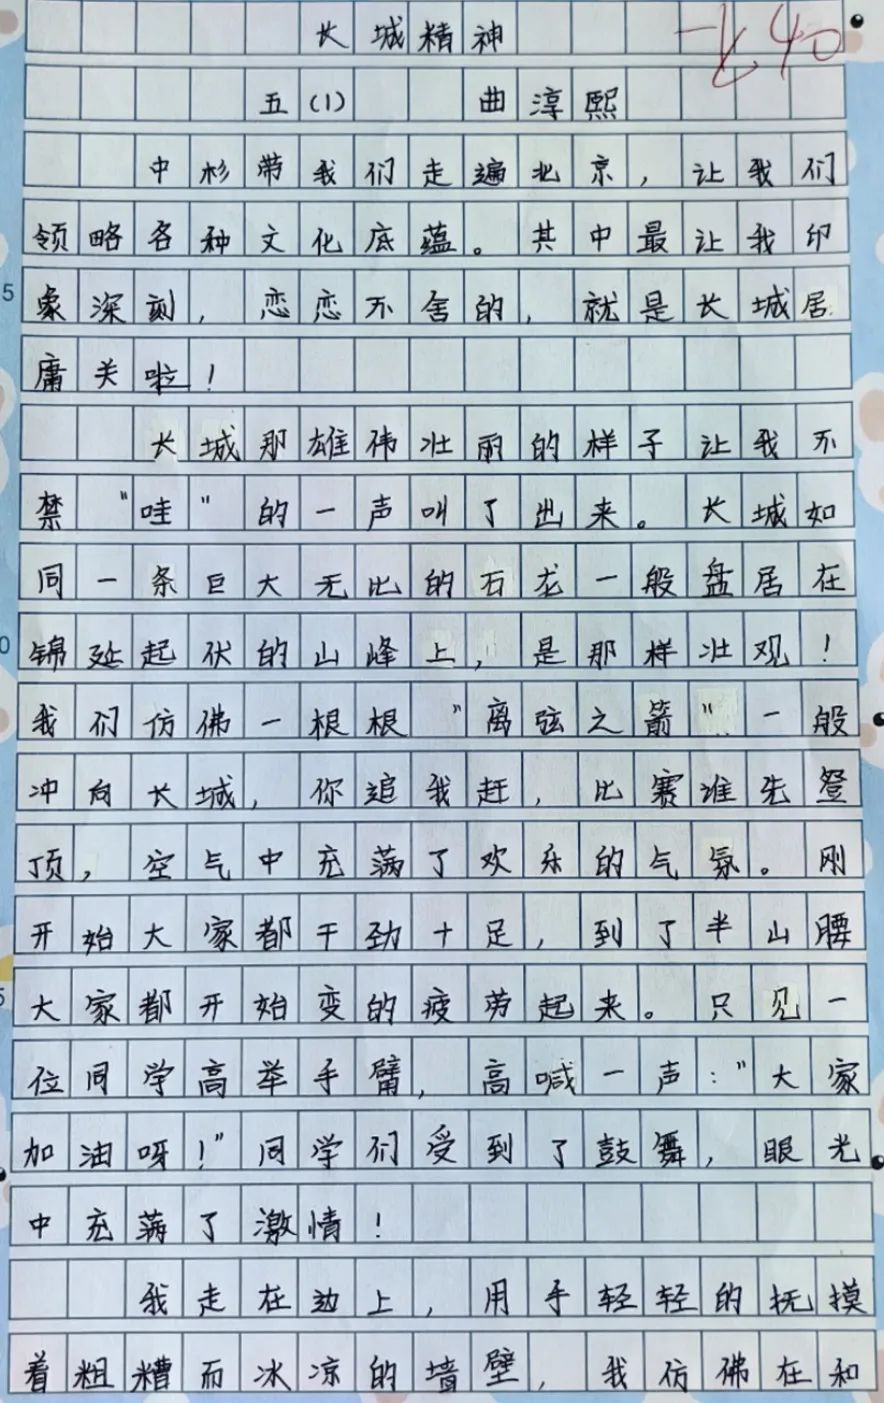 长城精神
五(1) 曲淳熙
中杉带我们走遍北京，让我们
领略各种文化底蕴。其中最让我印
象深刻，恋恋不舍的，就是长城居
庸关啦！
长城那雄伟壮丽的样子让我不
禁“哇”的一声叫了出来。长城如
同一条巨大无比的石龙一般盘居在
锦延起伏的山峰上，是那样壮观！
我们仿佛一根根“离弦之箭”一般
冲向长城，你追我赶，比赛谁先登
顶，空气中充满了欢乐的气氛。刚
开始大家都干劲十足，到了半山腰
大家都开始变的疲劳起来。只见一
位同学高举手臂，高喊一声：“大家
加油呀！”同学们受到了鼓舞，眼光
中充满了激情！
我走在边上，用手轻轻的抚摸
着粗糟而冰凉的墙壁，我仿佛在和
5